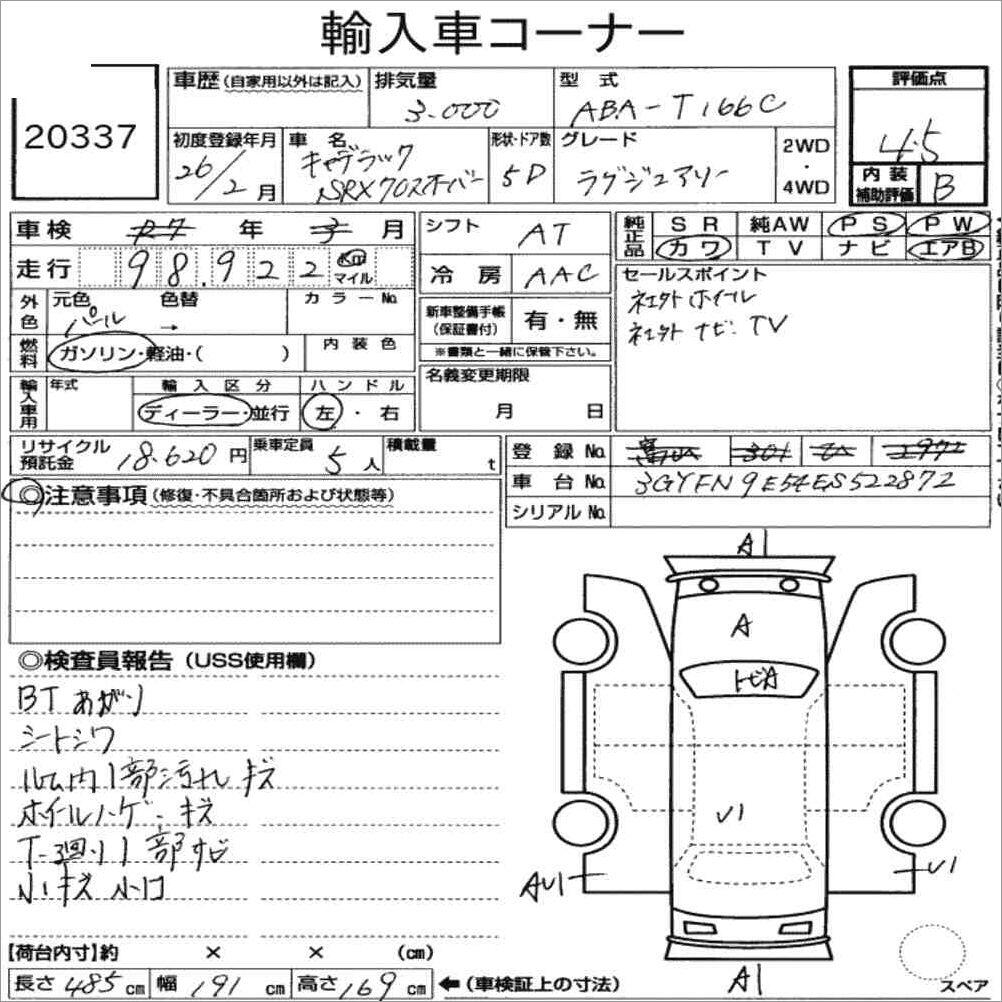 輸入車コーナー
20337
車歴(自家用以外は記入) 排気量 3.000 型式 ABA-T166C 評価点 4.5
初度登録年月 26/2月 車名 キャデラック SRXクロスオーバー 形状・ドア数 5D グレード ラグジュアリー 2WD・4WD 内装補助評価 B
車検 年 月 シフト AT 純正品 SR 純AW PS PW
カワ TV ナビ エアB
走行 98.922 Km マイル 冷房 AAC セールスポイント
社外ホイール
社外ナビ・TV
外色 元色 パール 色替 → カラーNo. 新車整備手帳(保証書付) 有・無
燃料 ガソリン・軽油・( ) 内装色 ※書類と一緒に保管下さい。
輸入車用 年式 輸入区分 ディーラー・並行 ハンドル 左・右 名義変更期限 月 日
リサイクル預託金 18.620円 乗車定員 5人 積載量 t 登録No.
車台No. 3GYFN9E54ES522872
シリアルNo.
◎注意事項(修復・不具合箇所および状態等)
◎検査員報告(USS使用欄)
BTあがり
シートシワ
ル内1部汚れ キズ
ホイルハゲ・キズ
下廻り1部サビ
小キズ 小凹
A1
A
トビA
U1
AU1
U1
A1
【荷台内寸】約 × × (cm)
長さ485cm 幅191cm 高さ169cm ←(車検証上の寸法)
スペア